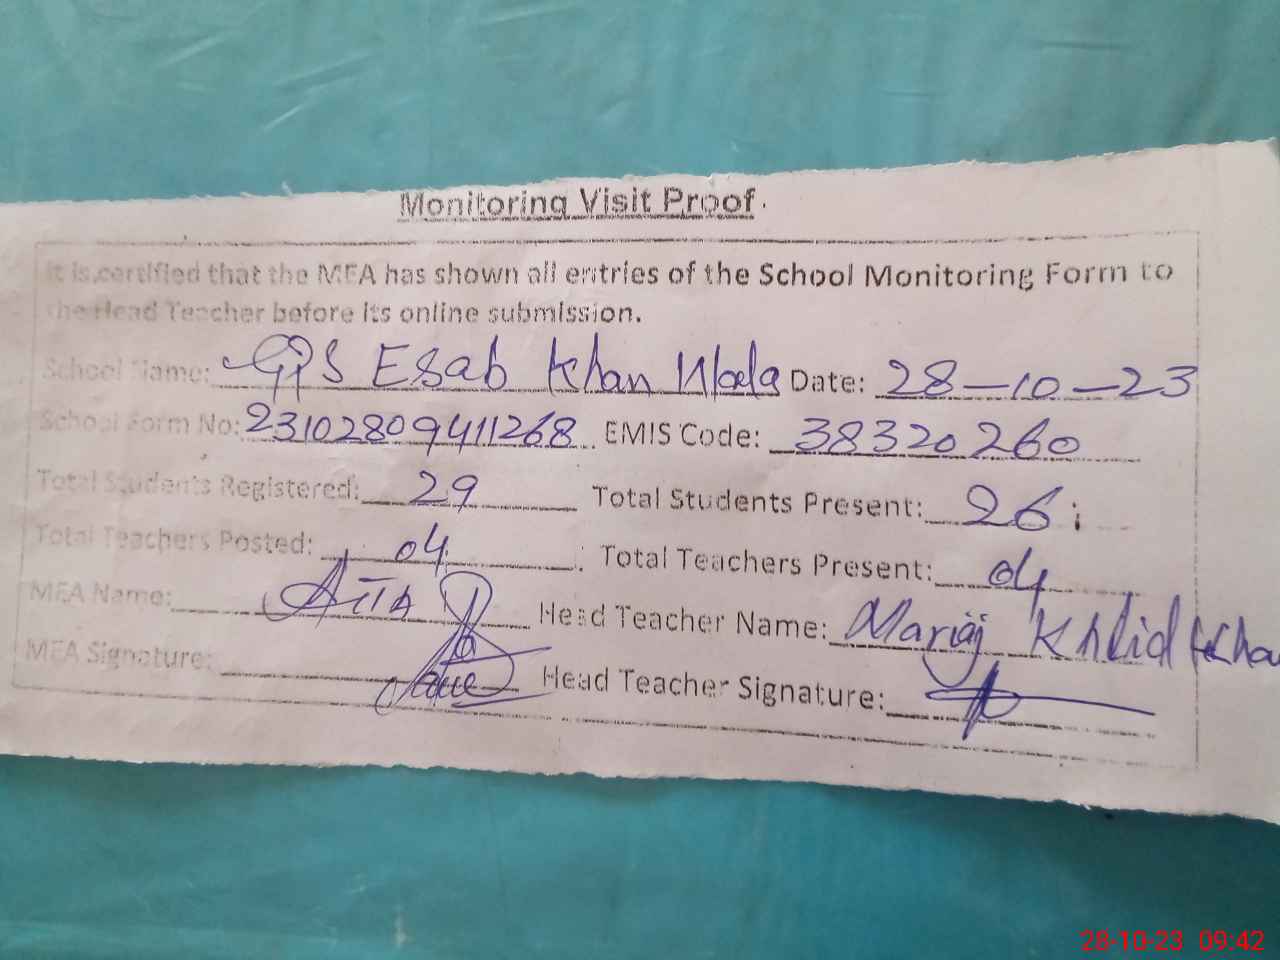 Monitoring Visit Proof.
It is certified that the MEA has shown all entries of the School Monitoring Form to
the Head Teacher before its online submission.
School Name: GPS Esab Khan Wala Date: 28-10-23
School Form No: 23102809411268 EMIS Code: 38320260
Total Students Registered: 29 Total Students Present: 26
Total Teachers Posted: 04 Total Teachers Present: 04
MEA Name: Head Teacher Name: Khlid
MEA Signature: Head Teacher Signature:
28-10-23 09:42